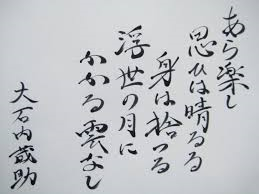 あら楽し
思ひは晴るる
身は捨つる
浮世の月に
かかる雲なし
大石内蔵助